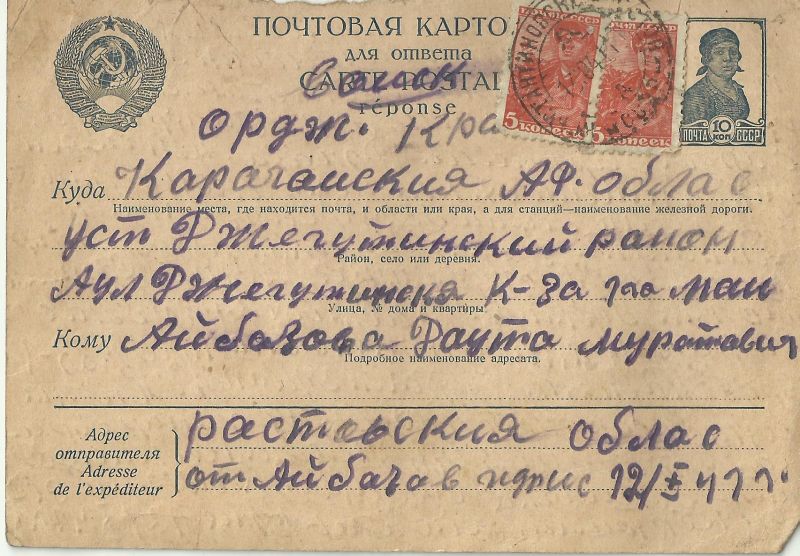 ПОЧТОВАЯ КАРТО
для ответа
CARTE POSTAL
réponse
5 КОПЕЕК
5 КОПЕЕК
ПОЧТА 10 КОП СССР
Ордж. Кра
Куда Карачаиския АФ. облас
Наименование места, где находится почта, и области или края, а для станций—наименование железной дороги.
уст Джегутинский раион
Район, село или деревня.
Аул Джегутинская К-за 1го маи
Улица, № дома и квартиры
Кому Айбазова Даута муратович
Подробное наименование адресата.
Адрес отправителя
Adresse de l'expéditeur
растовския облас
от Айбазав идрис 12/X 41 г.